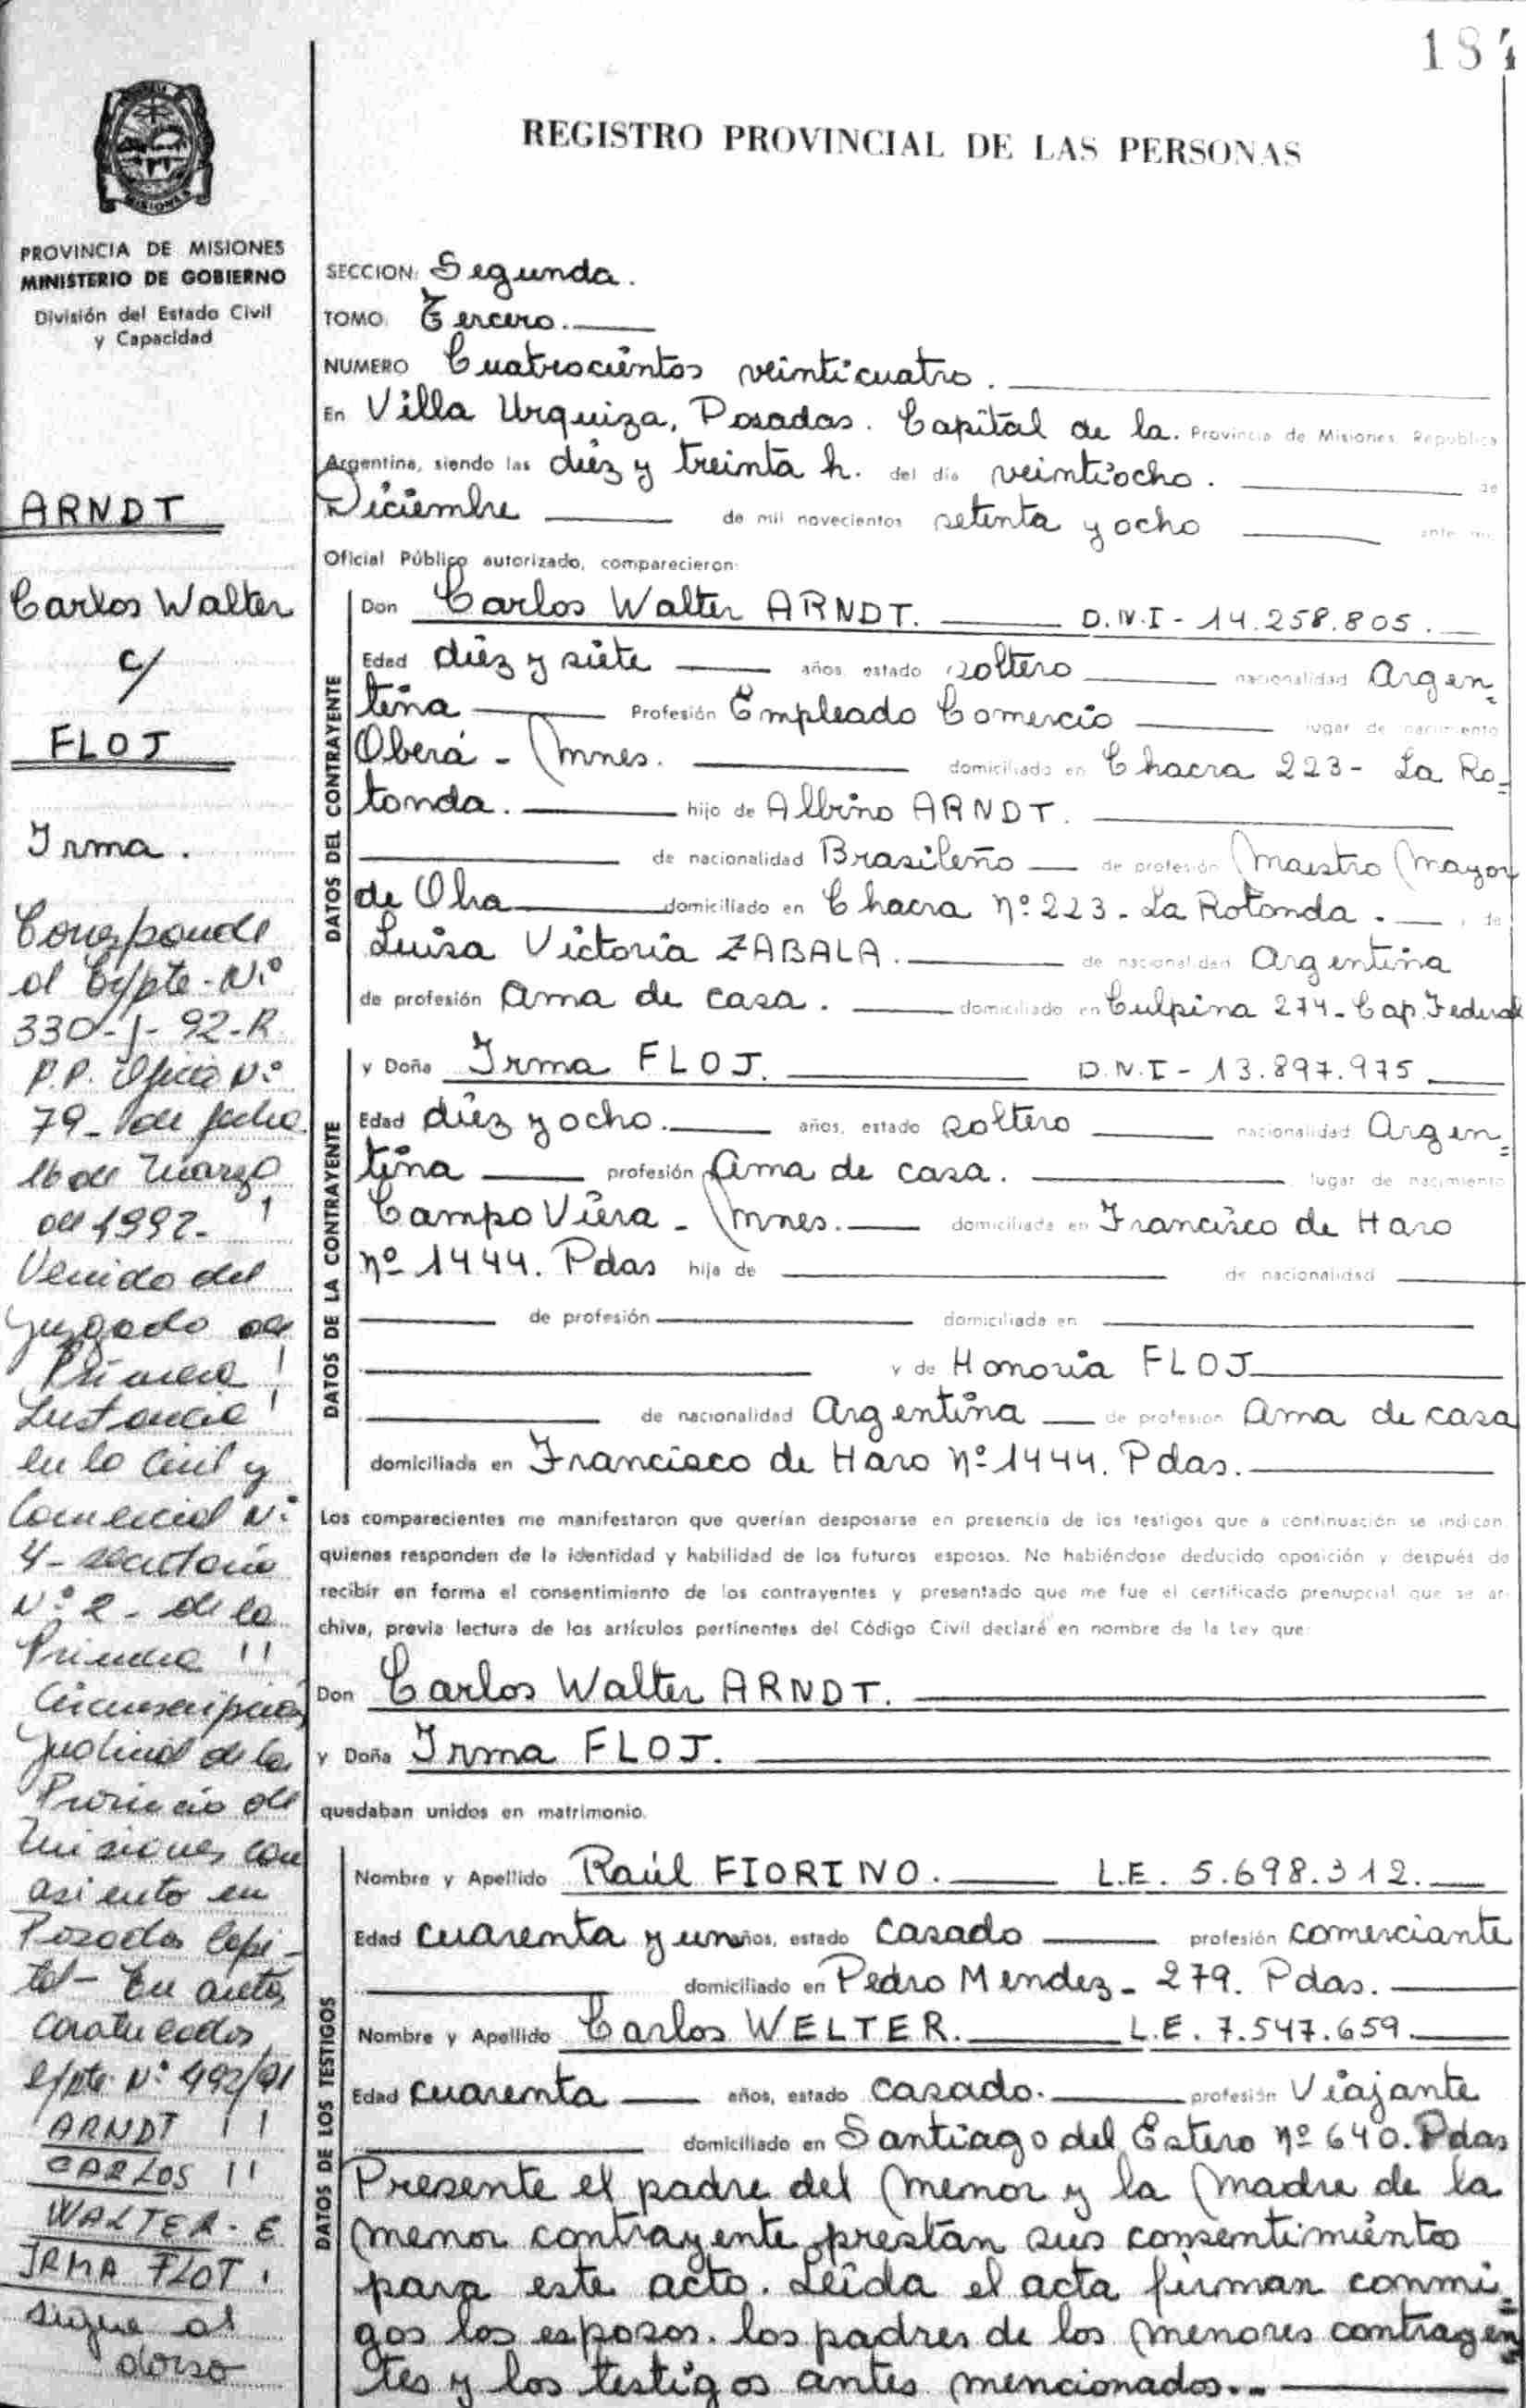 184
REGISTRO PROVINCIAL DE LAS PERSONAS
MISIONES
PROVINCIA DE MISIONES
MINISTERIO DE GOBIERNO
División del Estado Civil
y Capacidad
ARNDT
Carlos Walter
c/
FLOJ
Irma.
Corresponde
al Expte-Nº
330-J-92-R
P.P. Oficio Nº
79- de fecha
16 de Marzo
de 1992-
Venido del
Juzgado de
Primera
Instancia
en lo Civil y
Comercial Nº
4- secretaria
Nº 2- de la
Primera
Circunscripción
Judicial de la
Provincia de
Misiones con
asiento en
Posadas Capi-
tal- En autos
caratulados
expte Nº 492/91
ARNDT
CARLOS
WALTER - E
IRMA FLOT
sigue al
dorso
SECCION: Segunda.
TOMO: Tercero.
NUMERO Cuatrociéntos veinticuatro.
En Villa Urquiza, Posadas. Capital de la. Provincia de Misiones República
Argentina, siendo las diéz y treinta h. del día veintiocho. de
Diciembre de mil novecientos setenta y ocho ante mi,
Oficial Público autorizado, comparecieron:
DATOS DEL CONTRAYENTE
Don Carlos Walter ARNDT. D.N.I - 14.258.805.
Edad diéz y siéte años, estado soltero nacionalidad Argen-
tina Profesión Empleado Comercio lugar de nacimiento
Oberá - Mnes. domiciliado en Chacra 223- La Ro-
tonda. hijo de Albino ARNDT.
de nacionalidad Brasileño de profesión Maestro Mayor
de Obra domiciliado en Chacra nº 223- La Rotonda. , de
Luisa Victoria ZABALA. de nacionalidad Argentina
de profesión Ama de casa. domiciliado en Culpina 274- Cap. Federal
DATOS DE LA CONTRAYENTE
y Doña Irma FLOJ. D.N.I - 13.897.975
Edad diéz y ocho. años, estado soltero nacionalidad Argen-
tina profesión Ama de casa. lugar de nacimiento
Campo Viera - Mnes. domiciliada en Francisco de Haro
nº 1444. Pdas hija de de nacionalidad
de profesión domiciliada en
y de Honoria FLOJ
de nacionalidad Argentina de profesión Ama de casa
domiciliada en Francisco de Haro nº 1444. Pdas.
Los comparecientes me manifestaron que querían desposarse en presencia de los testigos que a continuación se indican
quienes responden de la identidad y habilidad de los futuros esposos. No habiéndose deducido oposición y después de
recibir en forma el consentimiento de los contrayentes y presentado que me fue el certificado prenupcial que se ar-
chiva, previa lectura de los artículos pertinentes del Código Civil declaré en nombre de la Ley que:
Don Carlos Walter ARNDT.
y Doña Irma FLOJ.
quedaban unidos en matrimonio.
DATOS DE LOS TESTIGOS
Nombre y Apellido Raúl FIORINO. L.E. 5.698.312.
Edad cuarenta y un años, estado casado profesión comerciante
domiciliado en Pedro Mendez - 279. Pdas.
Nombre y Apellido Carlos WELTER. L.E. 7.547.659.
Edad cuarenta años, estado casado. profesión Viajante
domiciliado en Santiago del Estero nº 640. Pdas
Presente el padre del menor y la madre de la
menor contrayente, prestan sus consentimiéntos
para este acto. Leída el acta firman conmi-
gos los esposos. los padres de los menores contrayen-
tes y los testigos antes mencionados.-